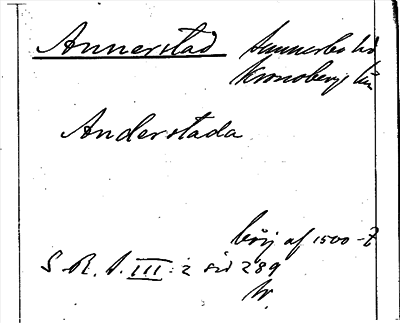 Annerstad Sunnerbo hd
Kronobergs län
Anderstada
börj af 1500-t
S. R. S. III: 2 sid 289